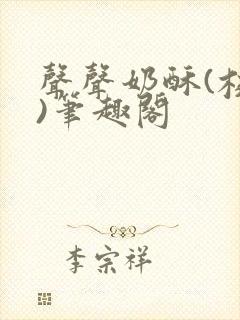 聲聲奶酥(校
)筆趣閣
李宗祥